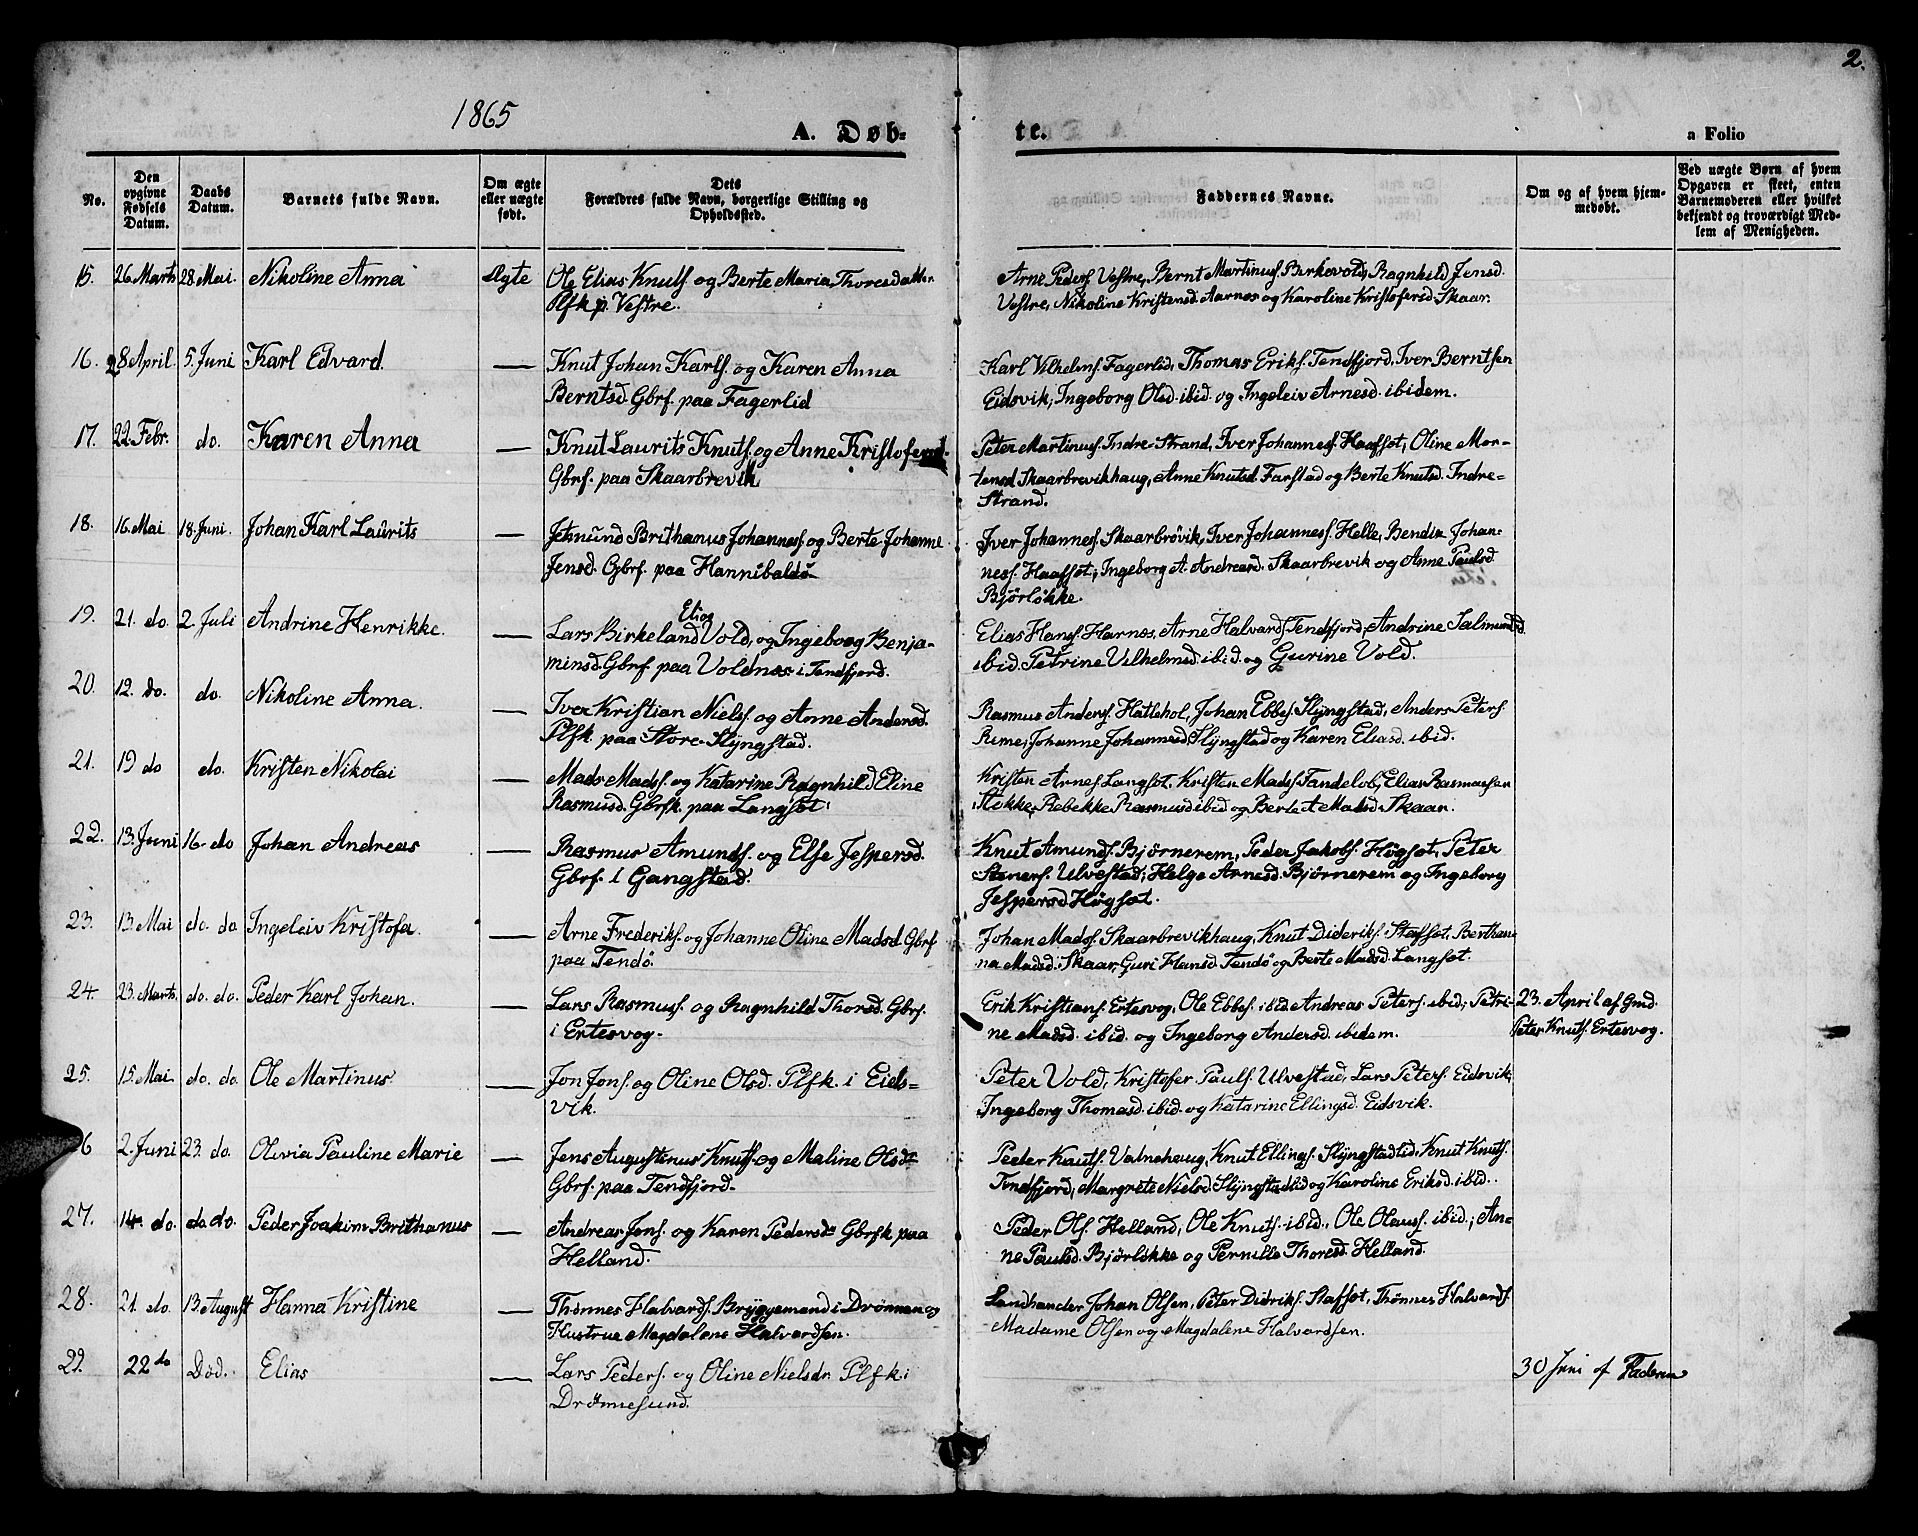 2.
1865
A. Døb-
te.
a Folio
No.
Den opgivne Fødsels Datum.
Daabs Datum.
Barnets fulde Navn.
Om ægte eller uægte født.
Dets Forældres fulde Navn, borgerlige Stilling og Opholdssted.
Faddernes Navne.
Om og af hvem hjemmedøbt.
Ved uægte Børn af hvem Opgaven er skeet, enten Barnemoderen eller hvilket bekjendt og troværdigt Medlem af Menigheden.
15. 26 Marts 28. Mai. Nikoline Anna Ægte Ole Elias Knuts og Berte Maria Thoresdatter Arne Peders Vestre, Bernt Martinus. Birkevold, Ragnhild Jensd.
Plfk p. Vestre. Vestre, Nikoline Kristensd. Aarnes og Karoline Kristoferd. Skaar.
16. 28 April. 5. Juni Karl Edvard. — Knut Johan Karls. og Karen Anna Karl Vilhelms. Fagerlid, Thomas Eriks. Tendfjord, Iver Berntsen
Berntsd. Gbrf. paa Fagerlid Eidsvik, Ingeborg Olsd. ibid. og Ingeleiv Arnesd. ibidem.
17. 22 Febr. do. Karen Anna — Knut Laurits Knuts. og Anne Kristofersd. Peter Martinus. Indre-Strand, Iver Johannes. Haafsøt, Oline Mor-
Gbrf. paa Skaarbrevik tensd Skaarbrevikhaug, Anne Knutsd. Farstad og Berte Knutsd. Indre-
Strand.
18. 16. Mai 18. Juni. Johan Karl Laurits — Jetmund Brithanus Johannes. og Berte Johanne Iver Johannes. Skaarbrøvik, Iver Johannes. Helle, Bendix Johan-
Jensd. Gbrf. paa Hannibaldø nes. Haafsøt, Ingeborg A. Andreasd. Skaarbrevik og Anne Paulsd
Bjørløkke.
19. 21. do. 2. Juli Andrine Henrikke. — Lars Birkeland Elias Vold, og Ingeborg Benja- Elias Hans. Harnes, Arne Halvards. Tendfjord, Andrine Salmundsd.
minsd. Gbrf. paa Voldnes i Tendfjord. ibid. Petrine Vilhelmsd. ibid. og Gurine Vold.
20. 12. do. do. Nikoline Anna. — Iver Kristian Niels. og Anne Andersd. Rasmus Anders. Hatlehol, Johan Ebbes. Slyngstad, Anders Peters
Plfk. paa Store-Slyngstad. Rime, Johanne Johannesd. Slyngstad og Karen Eliasd. ibid.
21. 19 do do. Kristen Nikolai — Mads Mads. og Katarine Ragnhild Eline Kristen Arnes. Langsøt, Kristen Mads. Tandeløb, Elias Rasmussen
Rasmusd. Gbrfk. paa Langsøt. Stokke, Rebekke Rasmusd ibid og Berte A Madsd. Skaar.
22. 13. Juni 16. do Johan Andreas — Rasmus Amunds. og Else Jespersd. Knut Amunds. Bjørnerem, Peder Jakobs. Høgsøt, Peter
Gbrf. i Gangstad. Steners. Ulvestad, Helge Arnesd. Bjørnerem og Ingeborg
Jespersd Høgsøt.
23. 13. Mai do. do. Ingeleiv Kristofa. — Arne Frederiks. og Johanne Oline Madsd. Gbrf Johan Mads. Skaarbrevikhaug, Knut Dideriks. Stafsøt, Berthan-
paa Tendø. na Madsd. Skaar, Guri Hansd. Tendø og Berte Madsd. Langsøt.
24. 23. Marts. do. do. Peder Karl Johan. — Lars Rasmus. og Ragnhild Thorsd. Gbrf. Erik Kristians. Ertesvog, Ole Ebbes. ibid. Andreas Peters. ibid, Petri- 23. April af Gmd.
i Ertesvog. ne Madsd. ibid. og Ingeborg Andersd. ibidem. Peter Knuts. Ertesvog.
25. 15. Mai do. do. Ole Martinus. — Jon Jons. og Oline Olsd. Plfk. i Eids- Peter Vold, Kristofer Pauls. Ulvestad, Lars Peters. Eidsvik,
vik. Ingeborg Thomasd. ibid. og Katarine Ellingsd. Eidsvik.
26 2. Juni 23. do. Olivia Pauline Marie — Jens Augustinus Knuts. og Maline Olsd. Peder Knuts. Vatnehaug, Knut Ellings. Slyngstadlid, Knut Knuts.
Gbrf. paa Tendfjord. Tendfjord, Margrete Nielsd. Slyngstadlid og Karoline Eriksd. ibid.
27. 14. do. do do. Peder Joakim Brithanus — Andreas Jons. og Karen Pedersd. Gbrfk paa Peder Ols. Helland, Ole Knuts. ibid., Ole Olaus. ibid., An-
Helland. ne Paulsd. Bjørløkke og Pernille Thoresd. Helland.
28. 21. do. 13. August Hanna Kristine — Thønnes Halvards. Bryggemand i Drønnen og Landhandler Johan Olsen, Peter Didriks. Stafsøt, Thønnes Halvards
Hustrue Magdalene Halvardsen. Madame Olsen og Magdalene Halvardsen.
29. 22 do Død. Elias — Lars Peders. og Oline Nielsdr. Plfk i 30 Juni af Faderen
Drønnesund.